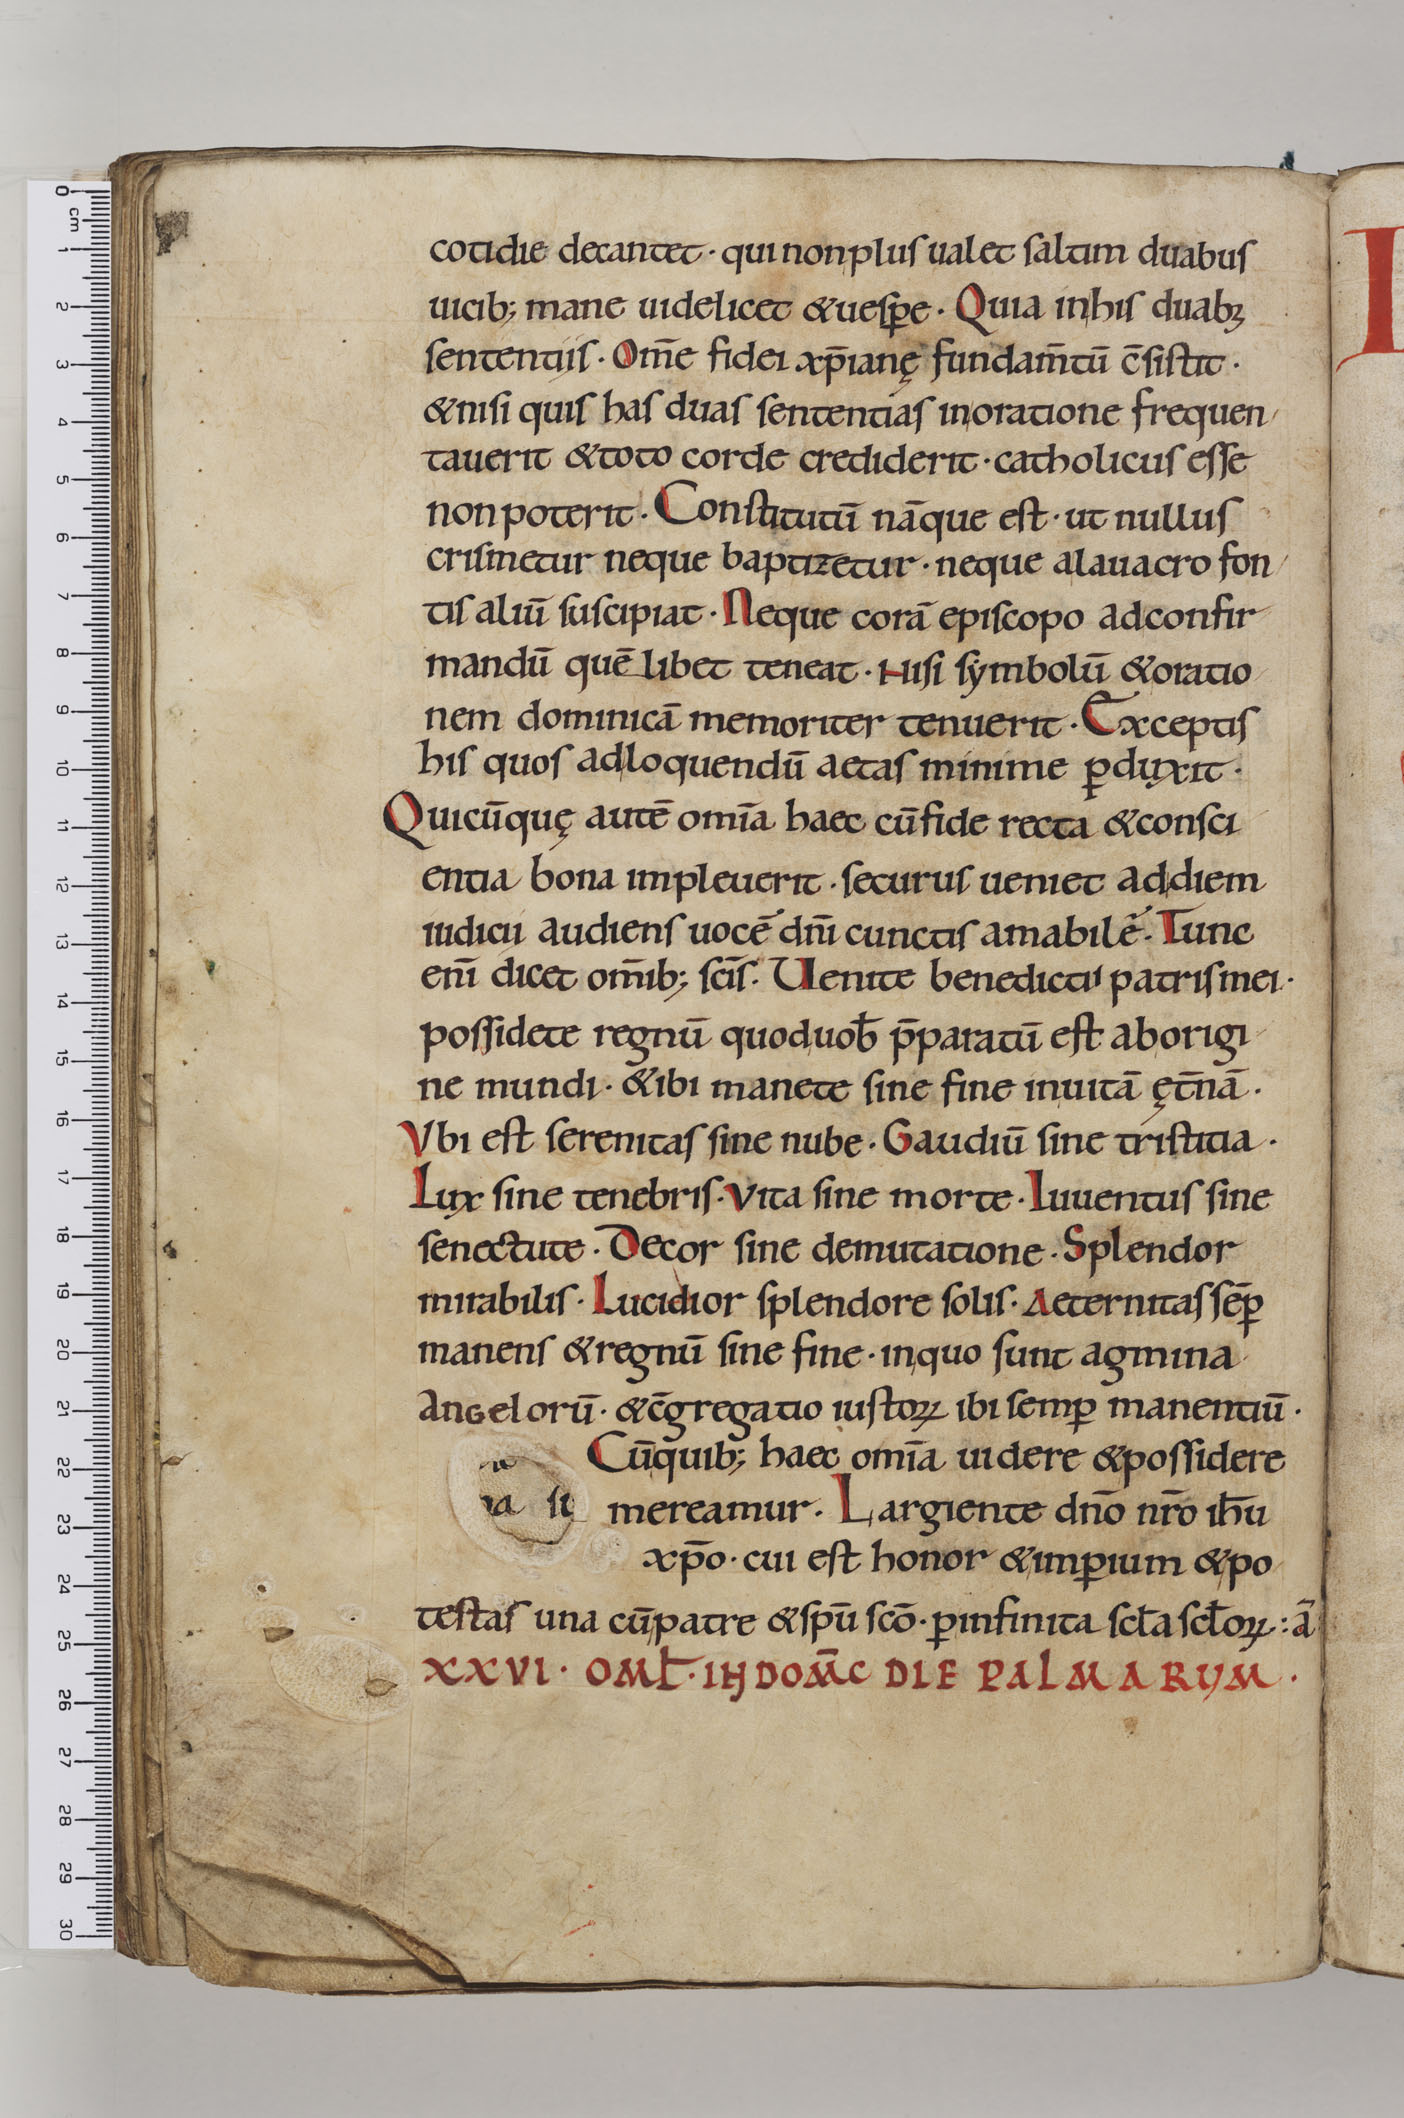 cotidie decantet · qui non plus ualet saltim duabus
uicib; mane uidelicet & uesꝑe · Quia in his duabꝫ
sententiis · Om̄e fidei xp̄ianę fundam̄tū c̄sistit ·
& nisi quis has duas sententias in oratione frequen
tauerit & toto corde crediderit · catholicus esse
non poterit · Constitutū nāque est · ut nullus
crismetur neque baptizetur · neque a lauacro fon
tis aliū suscipiat · Neque corā episcopo ad confir
mandū quē libet teneat · Nisi sẏmbolū & oratio
nem dominicā memoriter tenuerit · Exceptis
his quos ad loquendū aetas minime ꝑduxit ·
Quicūquę autē omīa haec cū fide recta & consci
entia bona impleuerit · securus ueniet ad diem
iudicii audiens uocē dn̄i cunctis amabilē · Tunc
enī dicet om̄ib; scīs · Uenite benedicti patris mei ·
possidete regnū quod uob̄ p̄paratū est ab origi
ne mundi · & ibi manete sine fine in uitā ęt̄nā ·
Vbi est serenitas sine nube · Gaudiū sine tristitia ·
Lux sine tenebris · Vita sine morte · Iuuentus sine
senectute · Decor sine demutatione · Splendor
mirabilis · Lucidior splendore solis · Aeternitas sēꝑ
manens & regnū sine fine · in quo sunt agmina
Angelorū · & c̄gregatio iustoꝝ ibi semꝑ manentiū ·
Cū quib; haec omīa uidere & possidere
mereamur · Largiente dn̄o nr̄o ih̄u
xp̄o · cui est honor & imꝑium & po
testas una cū patre & spū scō · ꝑ infinita scl̄a scl̄oꝝ : ā
XXVI · OML̄ · IN DOM̄C DIE PALMARUM ·
0
cm
1
2
3
4
5
6
7
8
9
10
11
12
13
14
15
16
17
18
19
20
21
22
23
24
25
26
27
28
29
30